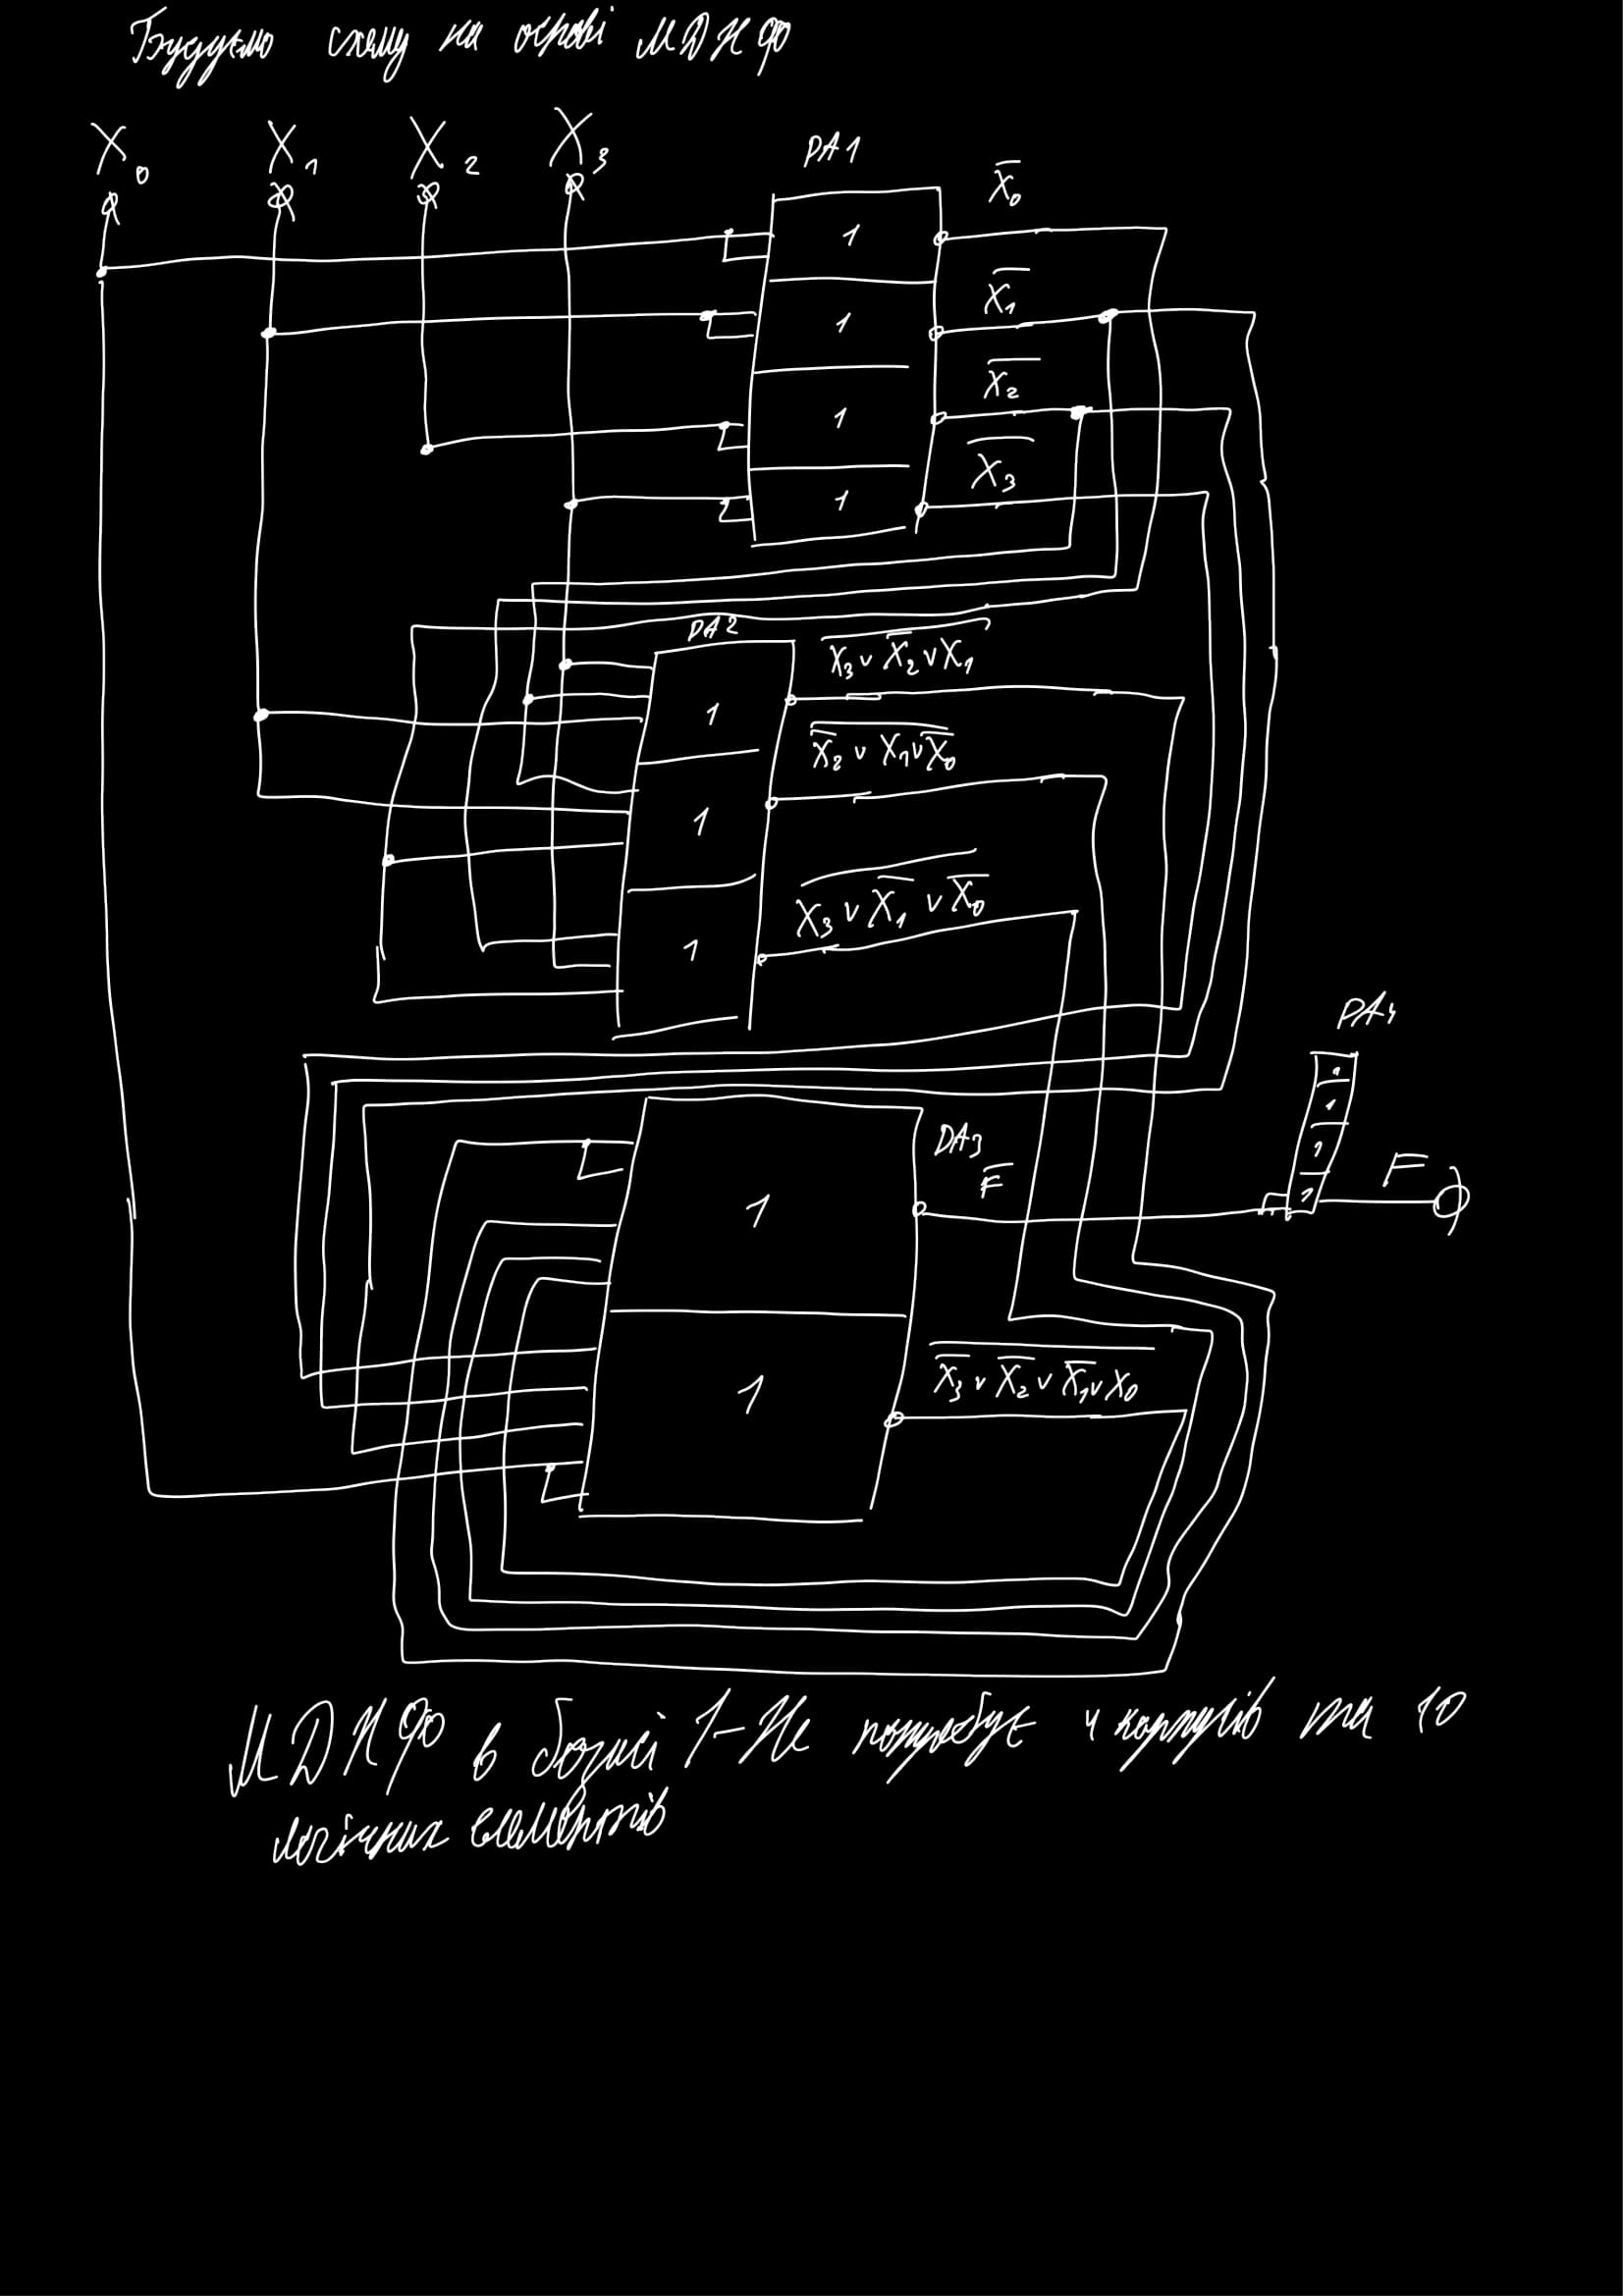 Будуємо схему на основі МДНФ
X0 X1 X2 X3 DA1 X̅0
1
X̅1
1
X̅2
1
X̅3
1
DA2
1 X3 ∨ X̅2 ∨ X1
1 X̅2 ∨ X1 ∨ X̅0
1 X3 ∨ X̅1 ∨ X̅0
DA4
1
1
1
1 F
DA3
F̅
1
1 X̅3 ∨ X̅2 ∨ X̅1 ∨ X0
МДНФ в базисі І-Не потребує 4 корпусів та 10
логічних елементів